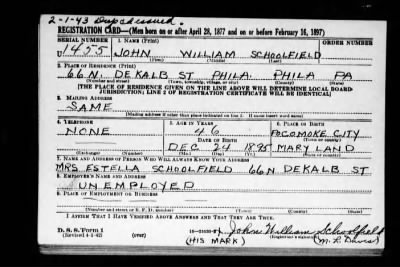 2-1-43 Dup. issued.
REGISTRATION CARD—(Men born on or after April 28, 1877 and on or before February 16, 1897)
SERIAL NUMBER 1. NAME (Print) ORDER NUMBER
U1455 JOHN WILLIAM SCHOOLFIELD
(First) (Middle) (Last)
2. PLACE OF RESIDENCE (Print)
66 N. DEKALB ST PHILA. PHILA PA
(Number and street) (Town, township, village, or city) (County) (State)
[THE PLACE OF RESIDENCE GIVEN ON THE LINE ABOVE WILL DETERMINE LOCAL BOARD
JURISDICTION; LINE 2 OF REGISTRATION CERTIFICATE WILL BE IDENTICAL]
3. MAILING ADDRESS
SAME
[Mailing address if other than place indicated on line 2. If same insert word same]
4. TELEPHONE 5. AGE IN YEARS 6. PLACE OF BIRTH
NONE 46 POCOMOKE CITY
DATE OF BIRTH (Town or county)
DEC 24 1895 MARYLAND
(Exchange) (Number) (Mo.) (Day) (Yr.) (State or country)
7. NAME AND ADDRESS OF PERSON WHO WILL ALWAYS KNOW YOUR ADDRESS
MRS. ESTELLA SCHOOLFIELD 66 N DEKALB ST
8. EMPLOYER'S NAME AND ADDRESS
UNEMPLOYED
9. PLACE OF EMPLOYMENT OR BUSINESS
(Number and street or R. F. D. number) (Town) (County) (State)
I AFFIRM THAT I HAVE VERIFIED ABOVE ANSWERS AND THAT THEY ARE TRUE.
D. S. S. Form 1
(Revised 4-1-42) (over) X John William Schoolfield
(HIS MARK) (Registrant's signature)